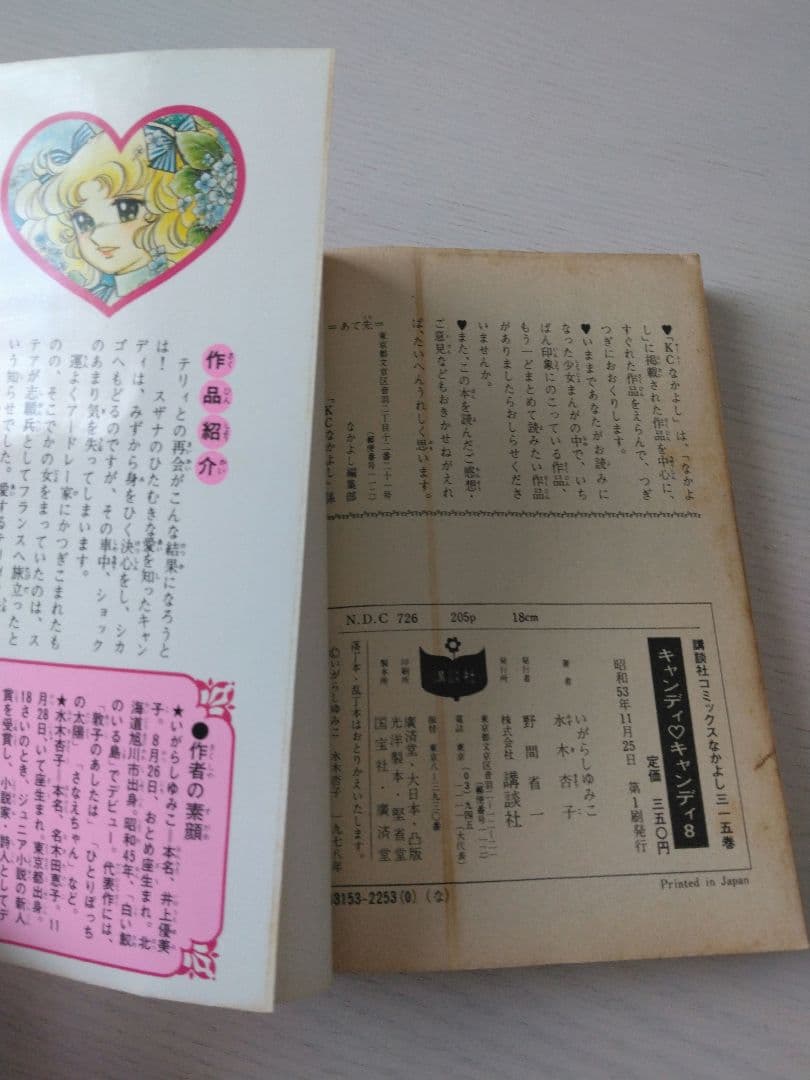 作品紹介
テリィとの再会がこんな結果になろうと
は! スザナのひたむきな愛を知ったキャン
ディは、みずから身をひく決心をし、シカ
ゴへもどるのですが、その車中、ショック
のあまり気を失ってしまいます。
運よくアードレー家にかつぎこまれたも
のの、そこでかの女をまっていたのは、ス
テアが志願兵としてフランスへ旅立ったと
いう知らせでした。愛するテリィ
●作者の素顔
★いがらしゆみこ―本名、井上優美
子。8月26日、おとめ座生まれ。北
海道旭川市出身。昭和45年、「白い鮫
のいる島」でデビュー。代表作には、
「敦子のあしたは」「ひとりぼっち
の太陽」「さなえちゃん」など。
★水木杏子―本名、名木田恵子。11
月28日、いて座生まれ。東京都出身。
18さいのとき、ジュニア小説の新人
賞を受賞し、小説家・詩人としてデ
♥「KCなかよし」は、「なかよ
し」に掲載された作品を中心に、
すぐれた作品をえらんで、つぎ
つぎにおおくりします。
♥いままであなたがお読みに
なった少女まんがの中で、いち
ばん印象にのこっている作品、
もう一どまとめて読みたい作品
がありましたらおしらせくださ
いませんか。
♥また、この本を読んだご感想・
ご意見などもおきかせねがえれ
ば、たいへんうれしく思います。
=あて先=
東京都文京区音羽二丁目十二番二十一号
(郵便番号一一二)
なかよし編集部
「KCなかよし」係
N.D.C 726 205p 18cm
講談社コミックスなかよし三一五巻
キャンディ♡キャンディ8
定価 三五〇円
昭和53年11月25日 第1刷発行
著者 いがらしゆみこ
水木杏子
発行者 野間省一
発行所 株式会社 講談社
東京都文京区音羽二―一二―二一
(郵便番号一一二)
電話 東京(03)九四五―一一一一(大代表)
振替 東京八―三九三〇番
印刷所 廣済堂・大日本・凸版
製本所 光洋製本・堅省堂
国宝社・廣済堂
落丁本・乱丁本はおとりかえいたします。
©いがらしゆみこ 水木杏子 一九七八年
3153-2253(0)(な)
Printed in Japan